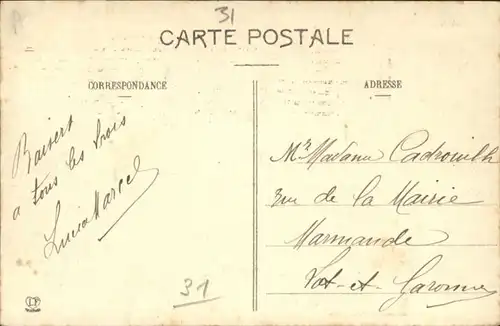 31
CARTE POSTALE
CORRESPONDANCE
ADRESSE
Baisers
a tous les trois
Lucia Marcel
Mr Madame Cadrouilh
3 rue de la Mairie
Marmande
Lot-et-Garonne
31